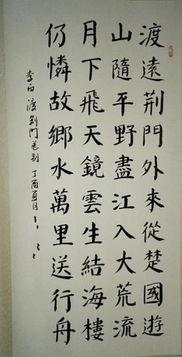 渡遠荆門外來從楚國遊
山隨平野盡江入大荒流
月下飛天鏡雲生結海樓
仍憐故鄉水萬里送行舟
李白渡荆門送别 丁酉夏月